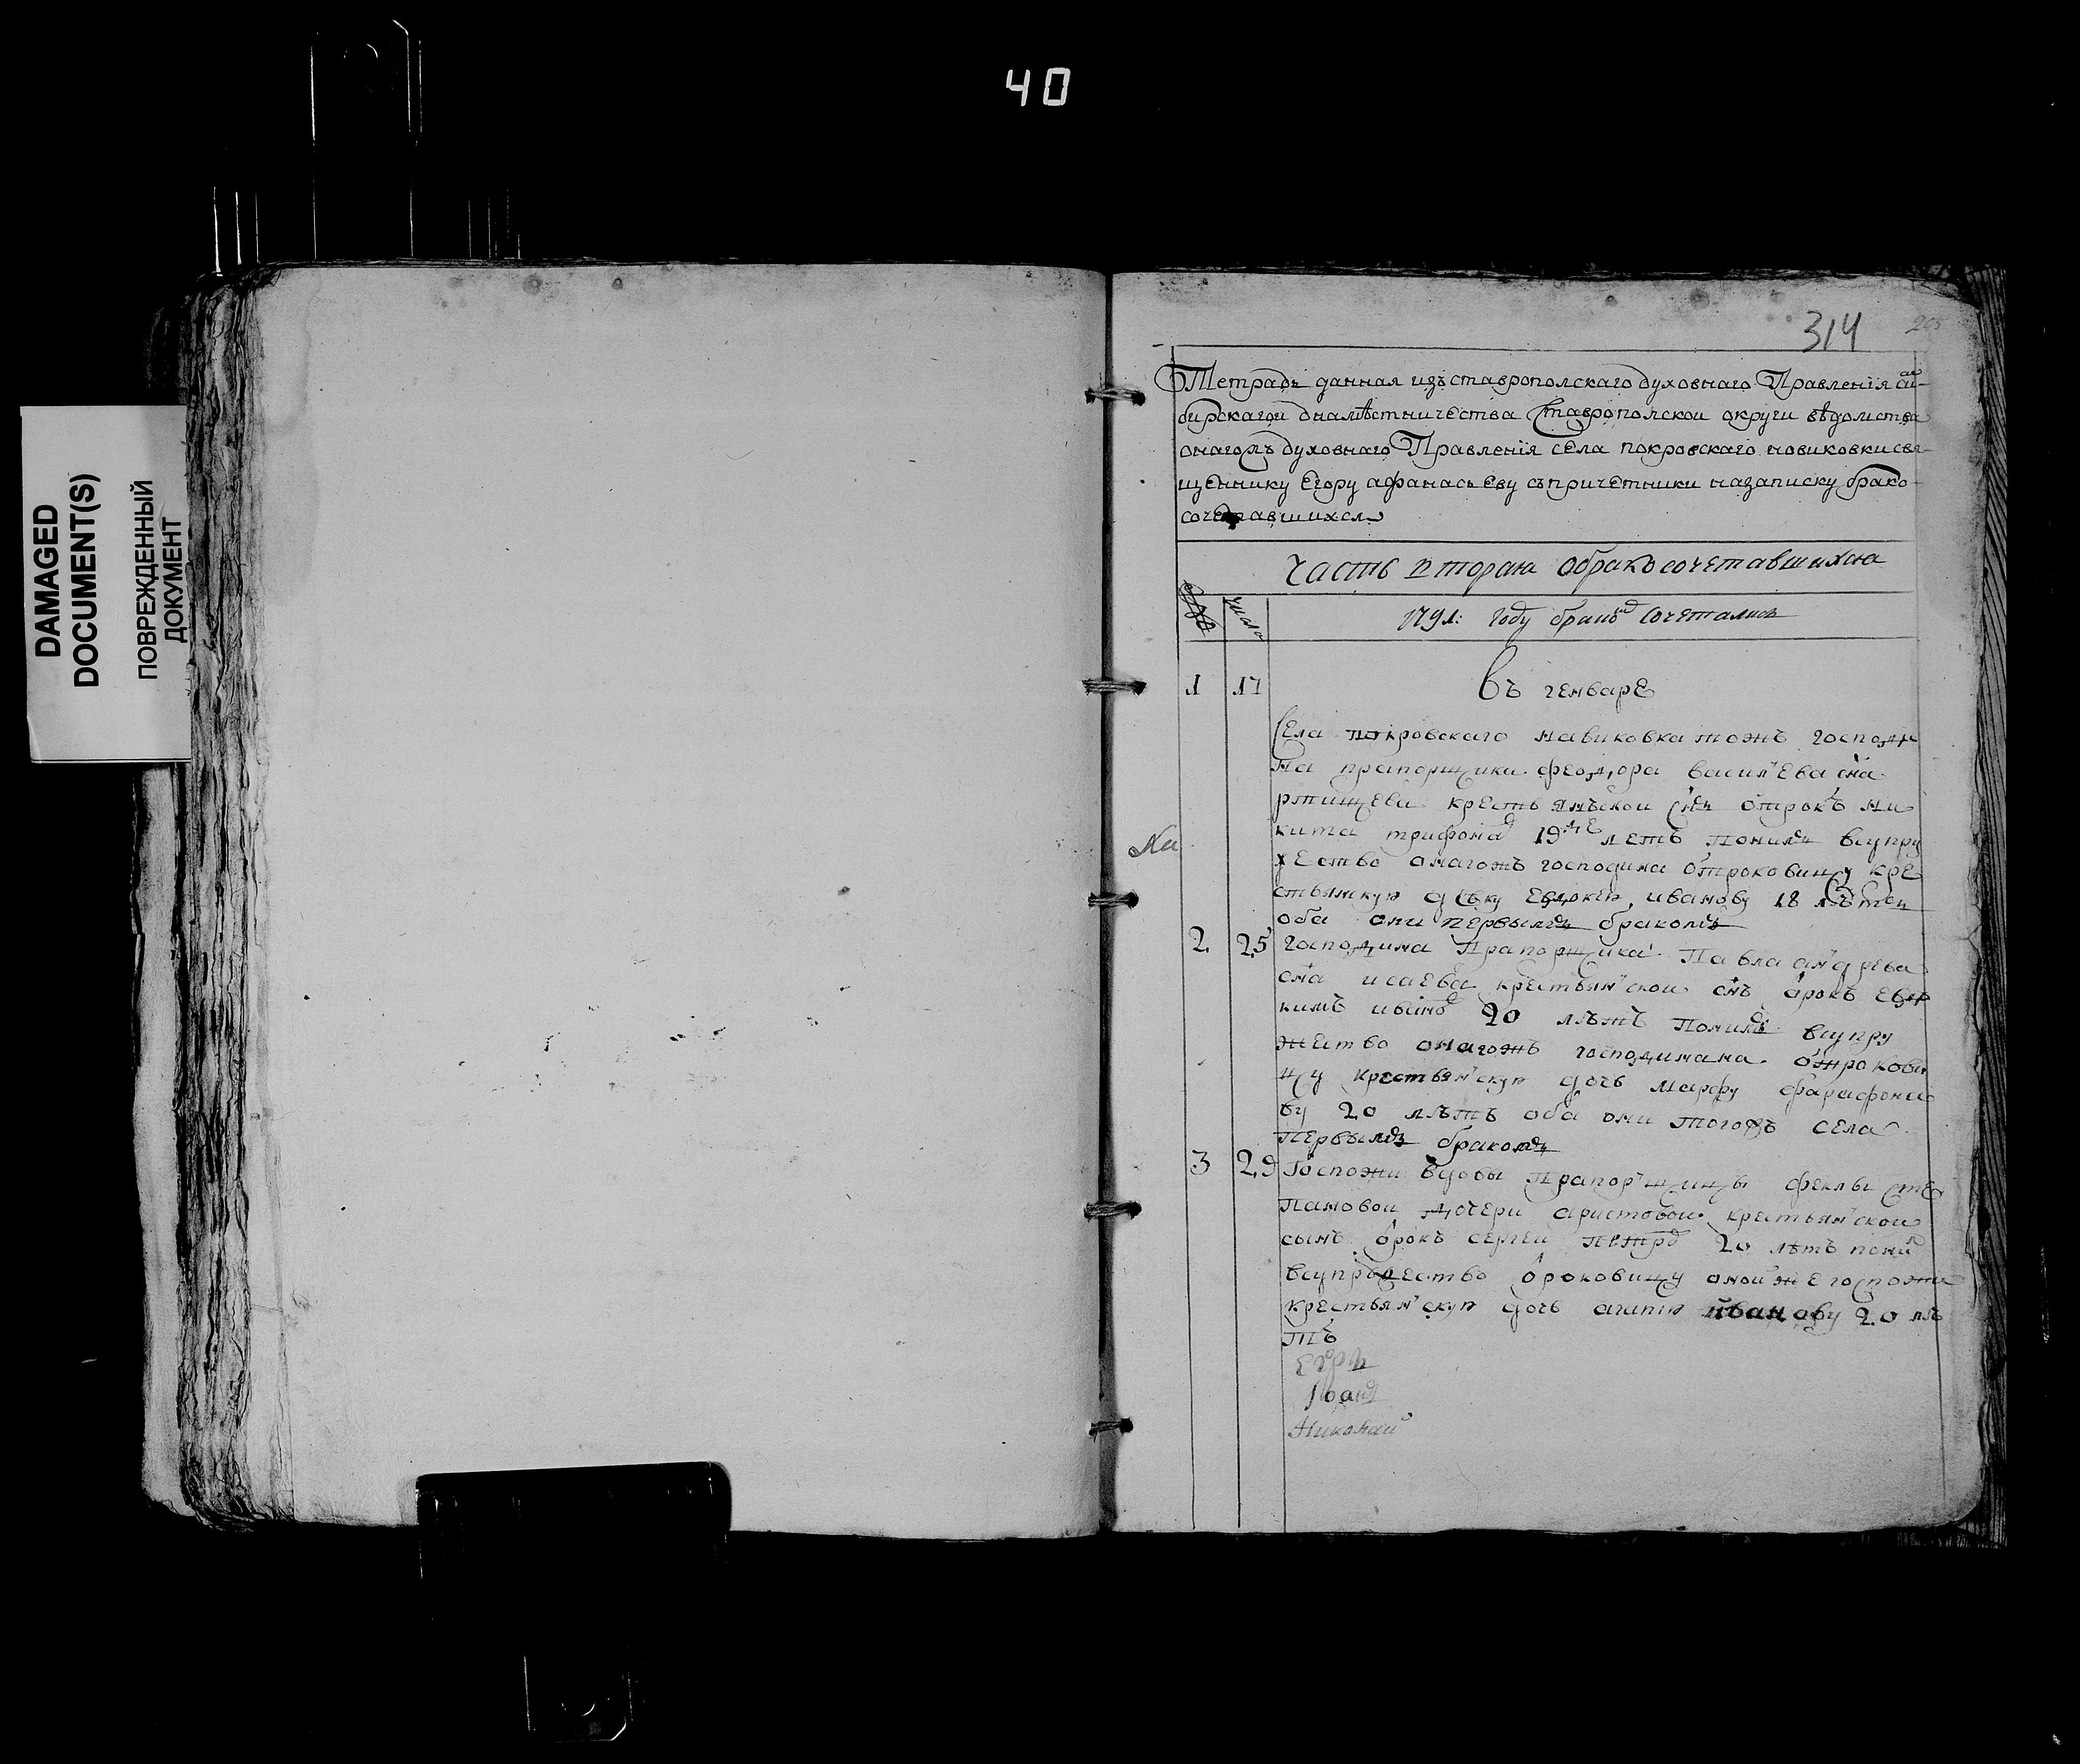 40
DAMAGED
DOCUMENT(S)
ПОВРЕЖДЕННЫЙ
ДОКУМЕНТ
314
205
Тетрадь данная изъ ставрополскаго духовнаго Правленія сим-
бирскагои дналѣстничества Ставрополской округи вѣдомства
онагожъ духовнаго Правленія села покровскаго новиковки свя-
щеннику Егору афанасьеву съ причетники назаписку брако
сочетавшихся
часть вторая обракосочетавшихся
число
1791: Году бракѡⷨ сочетались
1 17 въ генваре
Села покровскаго навиковка тожъ господи
на прапорщика феодора васильева сна
ртищева крестьянъской снъ отрокъ ни
кита трифоновъ 19 летъ понялъ всупру
жество онагожъ господина отроковицу кре
стьянскую девку евдокею иванову 18 лѣтъ
оба они первымъ бракомъ
2 25 господина Прапорщика Павла андрева
сна исаева крестьянской снъ отрокъ евдо
кимъ иванов 20 лѣтъ Понялъ всупру
жество онагожъ господинана отрокови
цу крестьянскую дочь марфу фарафоно
ву 20 лѣтъ оба они тогожъ села
Первымъ бракомъ
3 29 Госпожи вдовы Прапорщицы феклы сте
пановои дочери аристовои крестьянскои
сынъ отрокъ сергеи петров 20 лѣтъ понял
всупружество отроковицу оной же госпожи
крестьянскую дочь агапию иванову 20 лѣ
тъ
На
Егоръ
Іванъ
Николаи